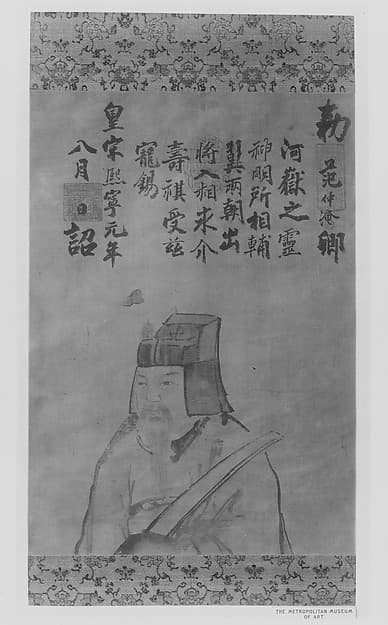 勅范仲淹卿
河嶽之靈
神明所相輔
翼兩朝出
將入相來介
壽祺受茲
寵錫
皇宋熙寧元年
八月日詔
THE METROPOLITAN MUSEUM
OF ART